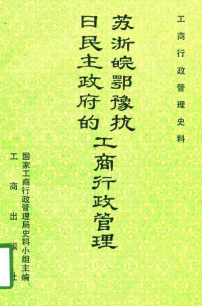 工商行政管理史料
苏浙皖鄂豫抗
日民主政府的
工商行政管理
国家工商行政管理局史料小组主编
工商出版社